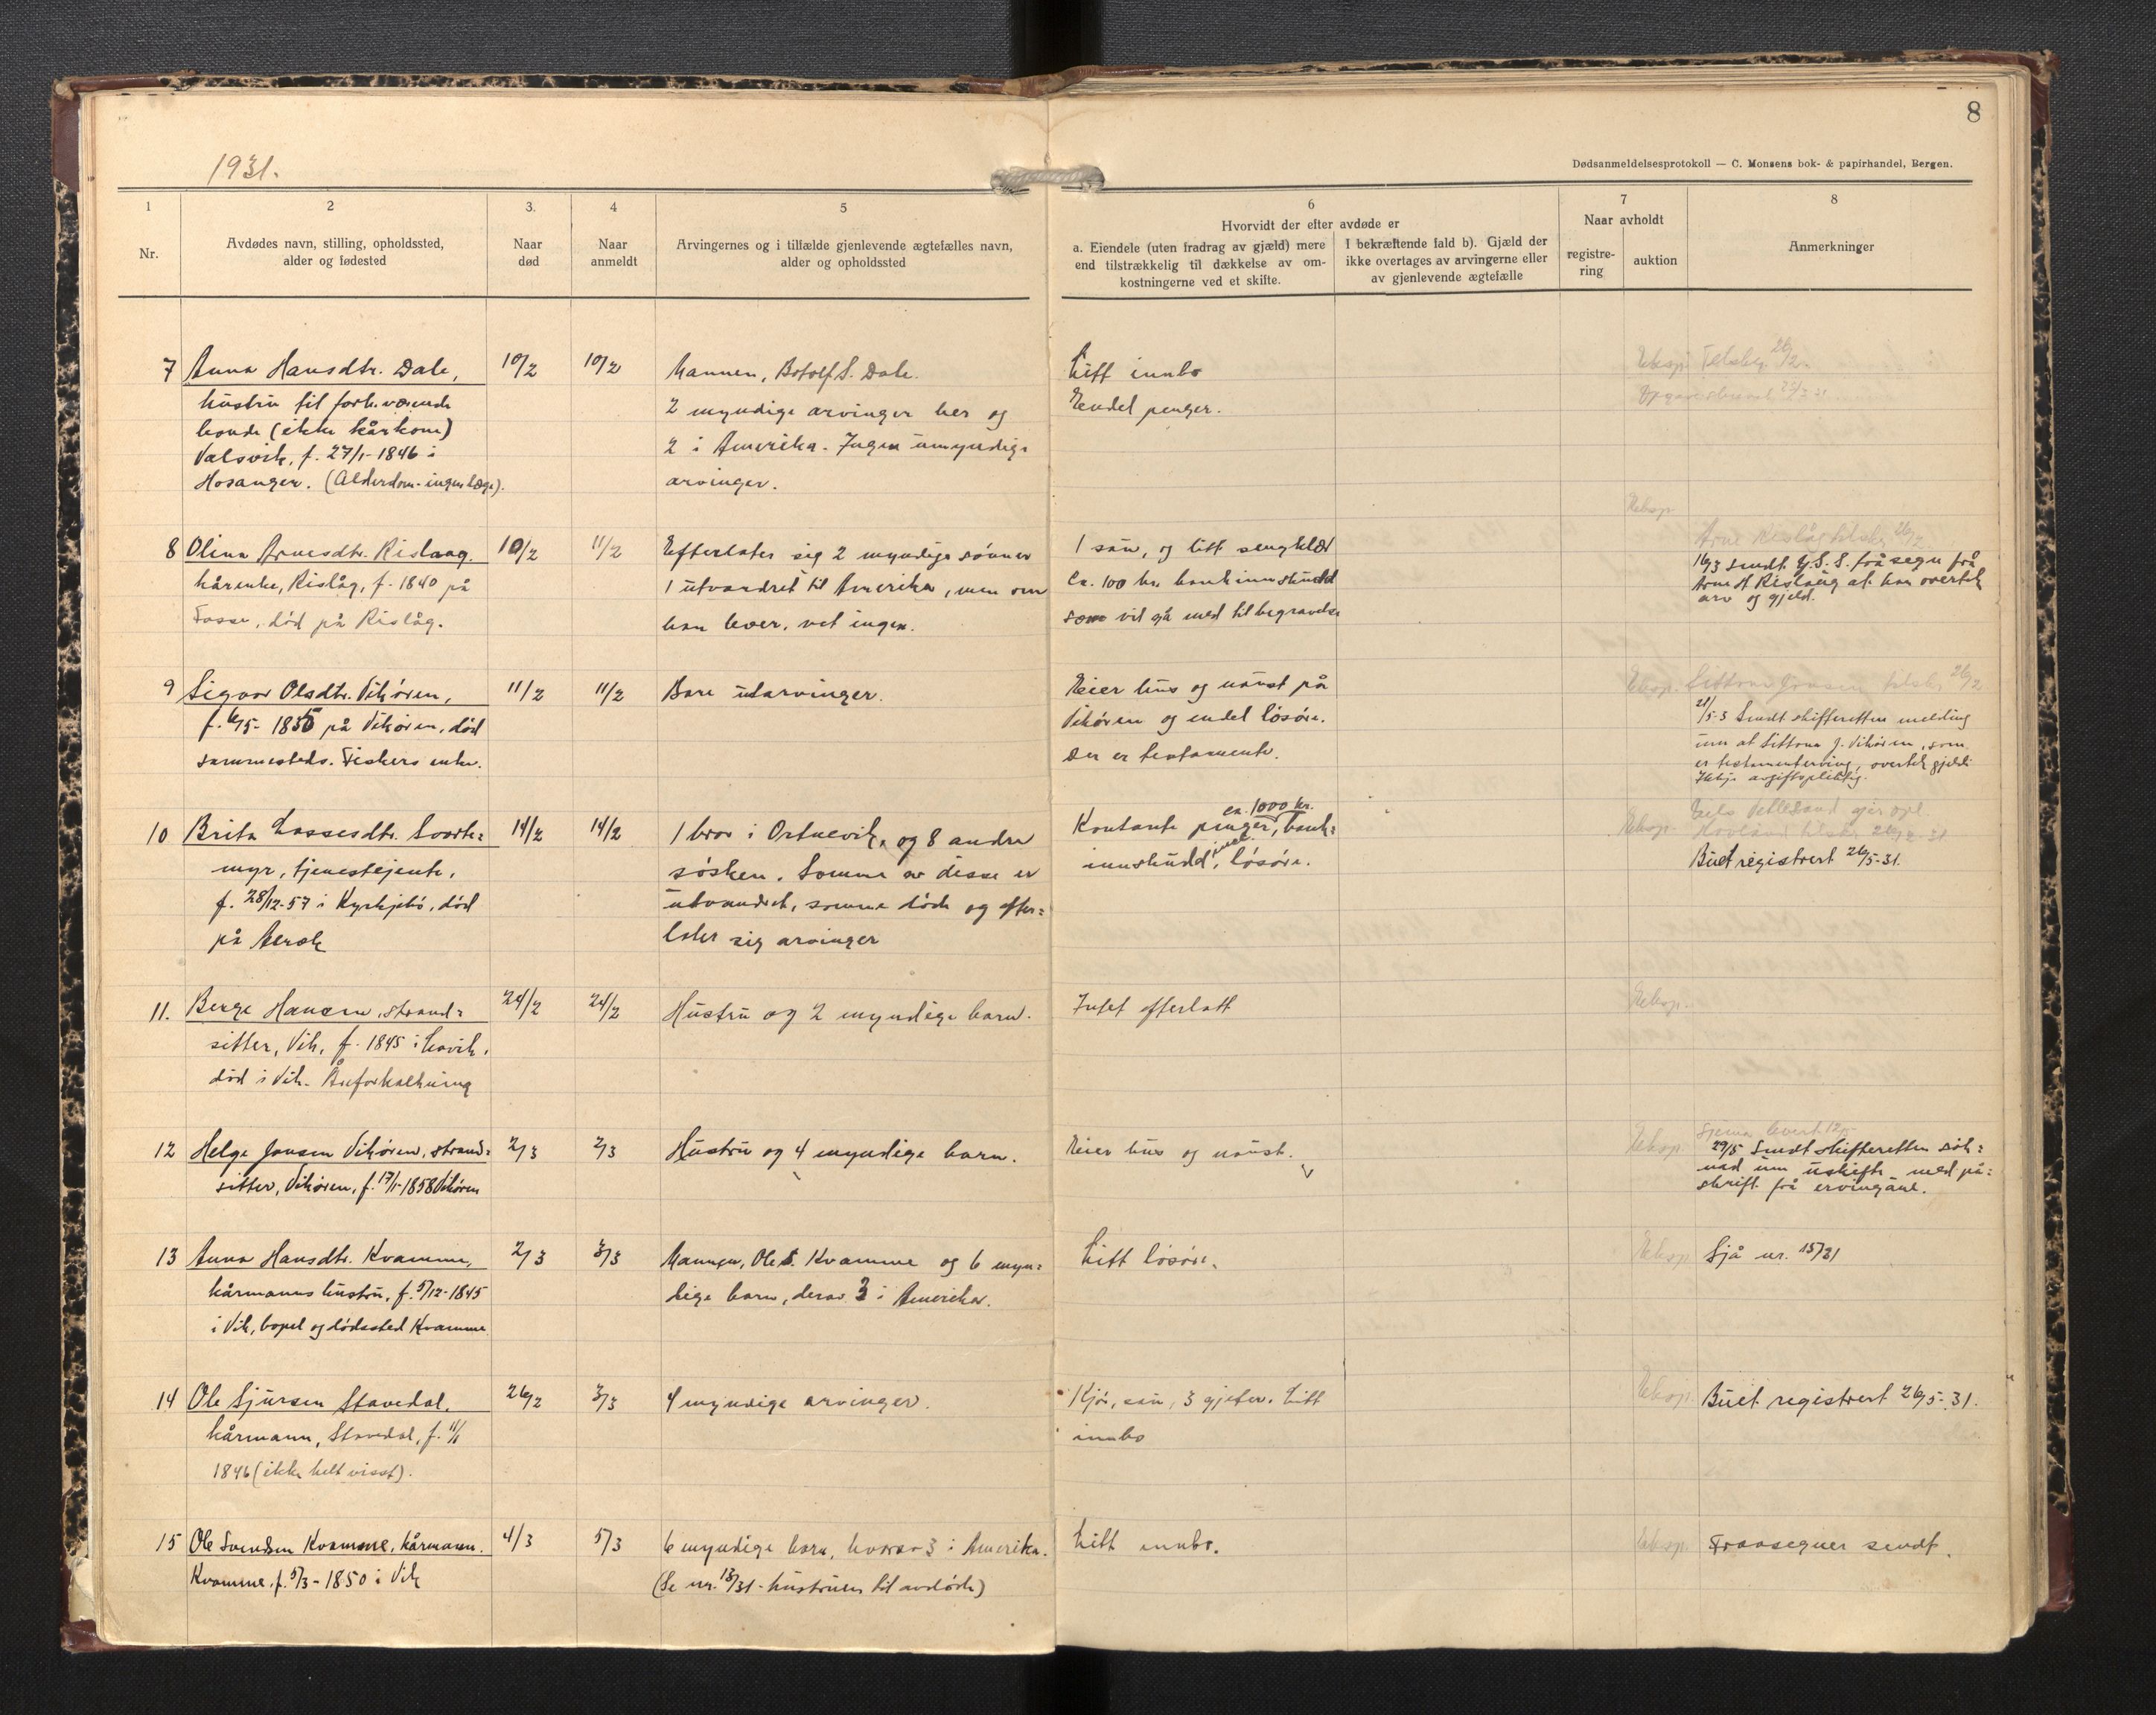 8
1931.
Dødsanmeldelsesprotokoll — C. Monsens bok- & papirhandel, Bergen.
1
2
3.
4
5
6
7
8
Nr.
Avdødes navn, stilling, opholdssted,
alder og fødested
Naar
død
Naar
anmeldt
Arvingernes og i tilfælde gjenlevende ægtefælles navn,
alder og opholdssted
Hvorvidt der efter avdøde er
a. Eiendele (uten fradrag av gjæld) mere
end tilstrækkelig til dækkelse av om-
kostningerne ved et skifte.
I bekræftende fald b). Gjæld der
ikke overtages av arvingerne eller
av gjenlevende ægtefælle
Naar avholdt
registre-
ring
auktion
Anmerkninger
7 Anna Hansdtr. Dale,
hustru til forh. værende
bonde (ikke kårkone)
Valsvik, f. 27/1-1846 i
Hosanger. (Alderdom-ingen læge).
10/2
10/2
Mannen, Botolf S. Dale.
2 myndige arvinger her og
2 i Amerika. Ingen umyndige
arvinger.
Litt innbo
Endel penger.
Eksp. Tilsky. 26/2.
8 Olina Arnesdtr. Rislaag.
kårenke, Rislåg, f. 1840 på
Fosse, død på Rislåg.
10/2
11/2
Efterlater sig 2 myndige sønner
1 utvandret til Amerika, men om
han lever, vet ingen.
1 sau, og litt sengklær
Ca. 100 kr. bankinnskudd
som vil gå med til begravelse
Eksp.
Arne Rislåg tilsky 26/2
16/3 sendt G.S.S. fråsegn frå
Arne H Rislaug at han overtek
arv og gjeld.
9 Sigvor Olsdtr. Vikøren,
f. 6/5-1835 på Vikøren, død
sammesteds. Fiskers enke.
11/2
11/2
Bare utarvinger.
Eier hus og naust på
Vikøren og endel løsøre.
Der er testamente.
Eksp.
26/2
21/5-3 Sendt skifteretten melding
um at Littona J. Vikøren, som
er testamentarving, overtek gjeldi
Ikkje avgiftspliktig.
10 Brita Lassesdtr. Svorte=
myr, tjenestejente,
f. 28/12-57 i Kyrkjebø, død
på Aerok
14/2
14/2
1 bror i Ortnevik, og 8 andre
søsken. Somme av disse er
utvandret, somme døde og efter=
later sig arvinger
Kontante penger, ca. 1000 kr. bank=
innskudd, løsøre.
Eksp.
Buet registrert 26/5-31.
11. Berge Hansen, strand=
sitter, Vik, f. 1845 i Lavik,
død i Vik. Åreforkalkning
24/2
24/2
Hustru og 2 myndige barn.
Intet efterlatt
Eksp.
12 Helge Jonsen Vikøren, strand=
sitter, Vikøren, f. 17/1-1858 Vikøren
2/3
2/3
Hustru og 4 myndige barn.
Eier hus og naust.
Eksp.
29/5 Sendt skifteretten søk=
nad um uskifte med på=
skrift frå ervingane.
13 Anna Hansdtr. Kvamme,
kårmanns hustru, f. 5/12-1845
i Vik, bopel og dødssted Kvamme
2/3
3/3
Mannen, Ole S. Kvamme og 6 myn=
dige barn, derav 3 i Amerika.
Litt løsøre.
Eksp.
Sjå nr. 15/31
14 Ole Sjursen Stavedal,
kårmann, Stavedal, f. 11/1
1846 (ikke helt visst).
26/2
3/3
4 myndige arvinger.
1 kjør, sau, 3 gjeter. Litt
innbo
Eksp.
Buet registrert 26/5-31.
15 Ole Svendsen Kvamme, kårmann.
Kvamme, f. 5/3-1850 i Vik
4/3
5/3
6 myndige barn, hvorav 3 i Amerika.
(Se nr. 13/31 - hustruen til avdøde)
Litt innbo.
Eksp.
Fraasegner sendt.